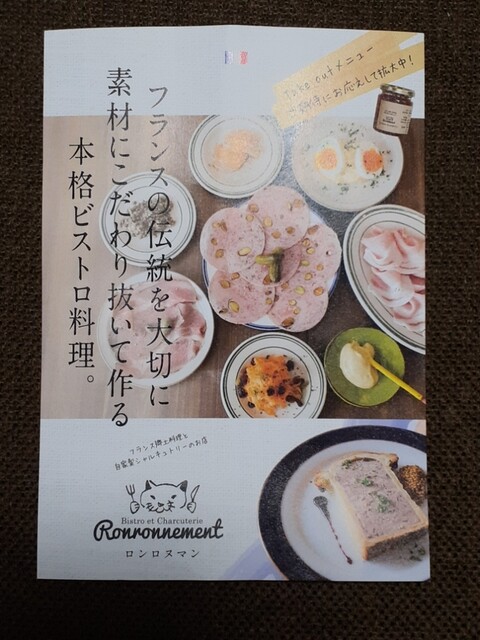 Take outメニュー
ご期待にお応えして拡大中！
フランスの伝統を大切に
素材にこだわり抜いて作る
本格ビストロ料理。
フランス郷土料理と
自家製シャルキュトリーのお店
Bistro et Charcuterie
Ronronnement
ロンロヌマン